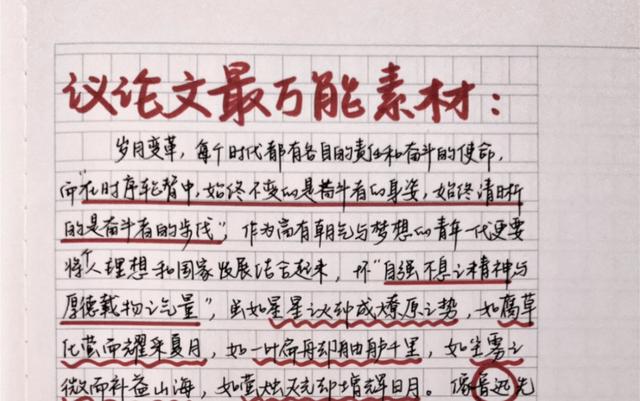 议论文最万能素材：
岁月变革，每个时代都有各自的责任和奋斗的使命，
而"在时序轮替中，始终不变的是奋斗者的身姿，始终清晰
的是奋斗者的步伐"，作为富有朝气与梦想的青年一代更要
将个人理想和国家发展结合起来，怀"自强不息之精神与
厚德载物之气量"，当如星星之火种成燎原之势，如腐草
化萤而耀采夏月，如一叶荷舟却舳舻千里，如尘雾之
微而补益山海，如萤烛末光却增辉日月。像鲁迅先